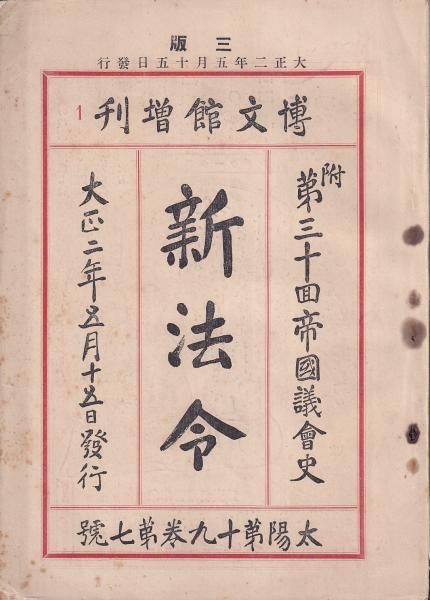 三版
大正二年五月十五日發行
博文館増刊
1
附
第三十回帝國議會史
新法令
大正二年五月十五日發行
太陽第十九卷第七號